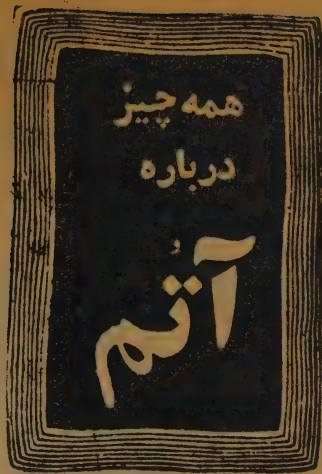 همه چیز
درباره
آتم